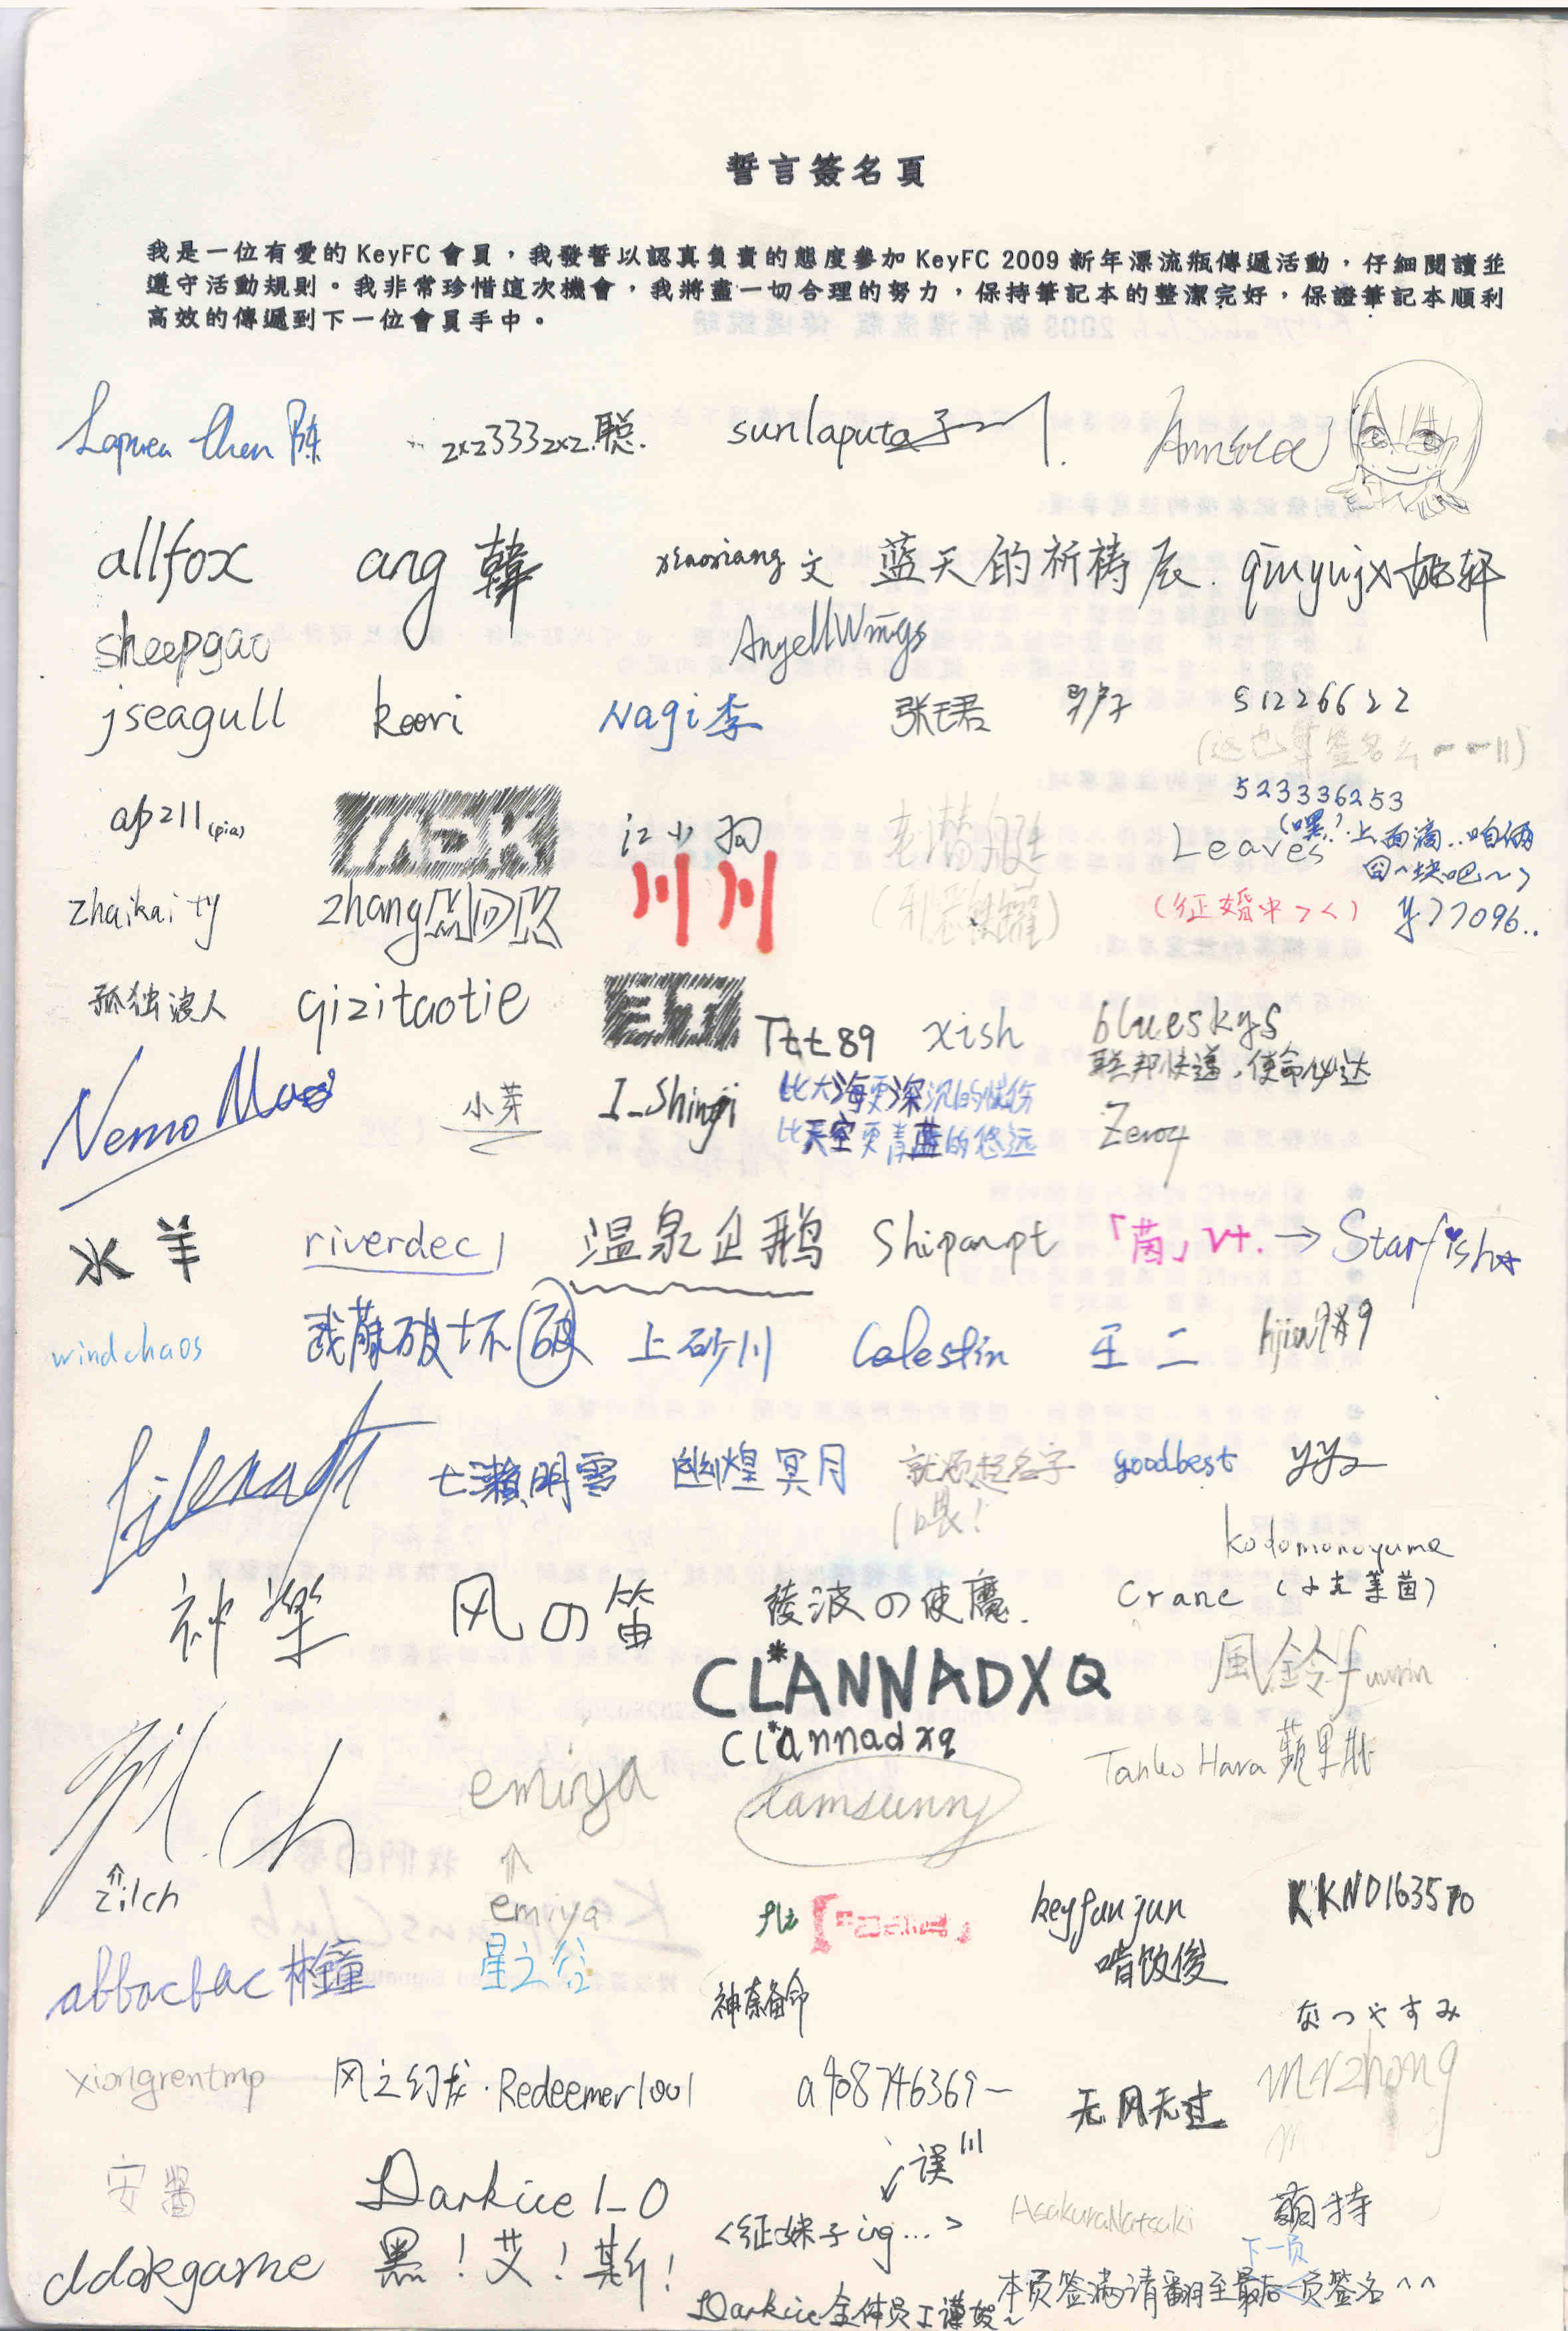 誓言簽名頁
我是一位有愛的 KeyFC 會員，我發誓以認真負責的態度參加 KeyFC 2009 新年漂流瓶傳遞活動，仔細閱讀並
遵守活動規則。我非常珍惜這次機會，我將盡一切合理的努力，保持筆記本的整潔完好，保證筆記本順利
高效的傳遞到下一位會員手中。
Chen 陈 zxz333zxz.聪. sunlaputa
allfox ang 韓 xiaoxiang 文 蓝天的祈祷辰. qinyujx
sheepgao AngellWings
jseagull keori Nagi李 张珺 51226622
(这也算签名么---||)
ap211(pia) 江小狗 老潜艇 523336253
Leaves (嘿!.上面滴..咱俩
囧~块吧~)
zhaikaity zhang 川川 (征婚中><) y77096..
孤独浪人 qizitaotie Ttt89 xish blueskys
联邦快递,使命必达
Nemo Mao 小芽 I_Shinji 比大海更深沉的
比天空更青蓝的悠远 Zero4
水羊 riverdec1 温泉企鹅 Shipanpt 「茵」vt. → Starfish
windchaos 破坏 上砂川 Celestin 王二
七瀬明雲 幽煌冥月 就须起名字 goodbest yy2
(喂!
kodomonoyume
神樂 风の笛 稜波の使魔. Crane (小克莱茵)
CL*ANNADXQ 風鈴fuurin
Cl*annadxq
Zil.ch emiya Iamsunny Tanko Hara 蘋果
⇑ ⇑
zilch emiya keyfunjun KKND163570
abbacbac 林鐘 星之谷 啃饭俊
神奈备命 なつやすみ
xiongrentmp 风之幻龙·Redeemer1001 a408746369~ 无风无过 mrzhong
安醬 Darkice1_0 ↙误 |||
<征妹子ing...> AsakuraNatsuki 萌特
ddakgame 黑！艾！斯！ 下一页
本页签满请翻至最后一页签名^^
Darkice全体员工谨贺~